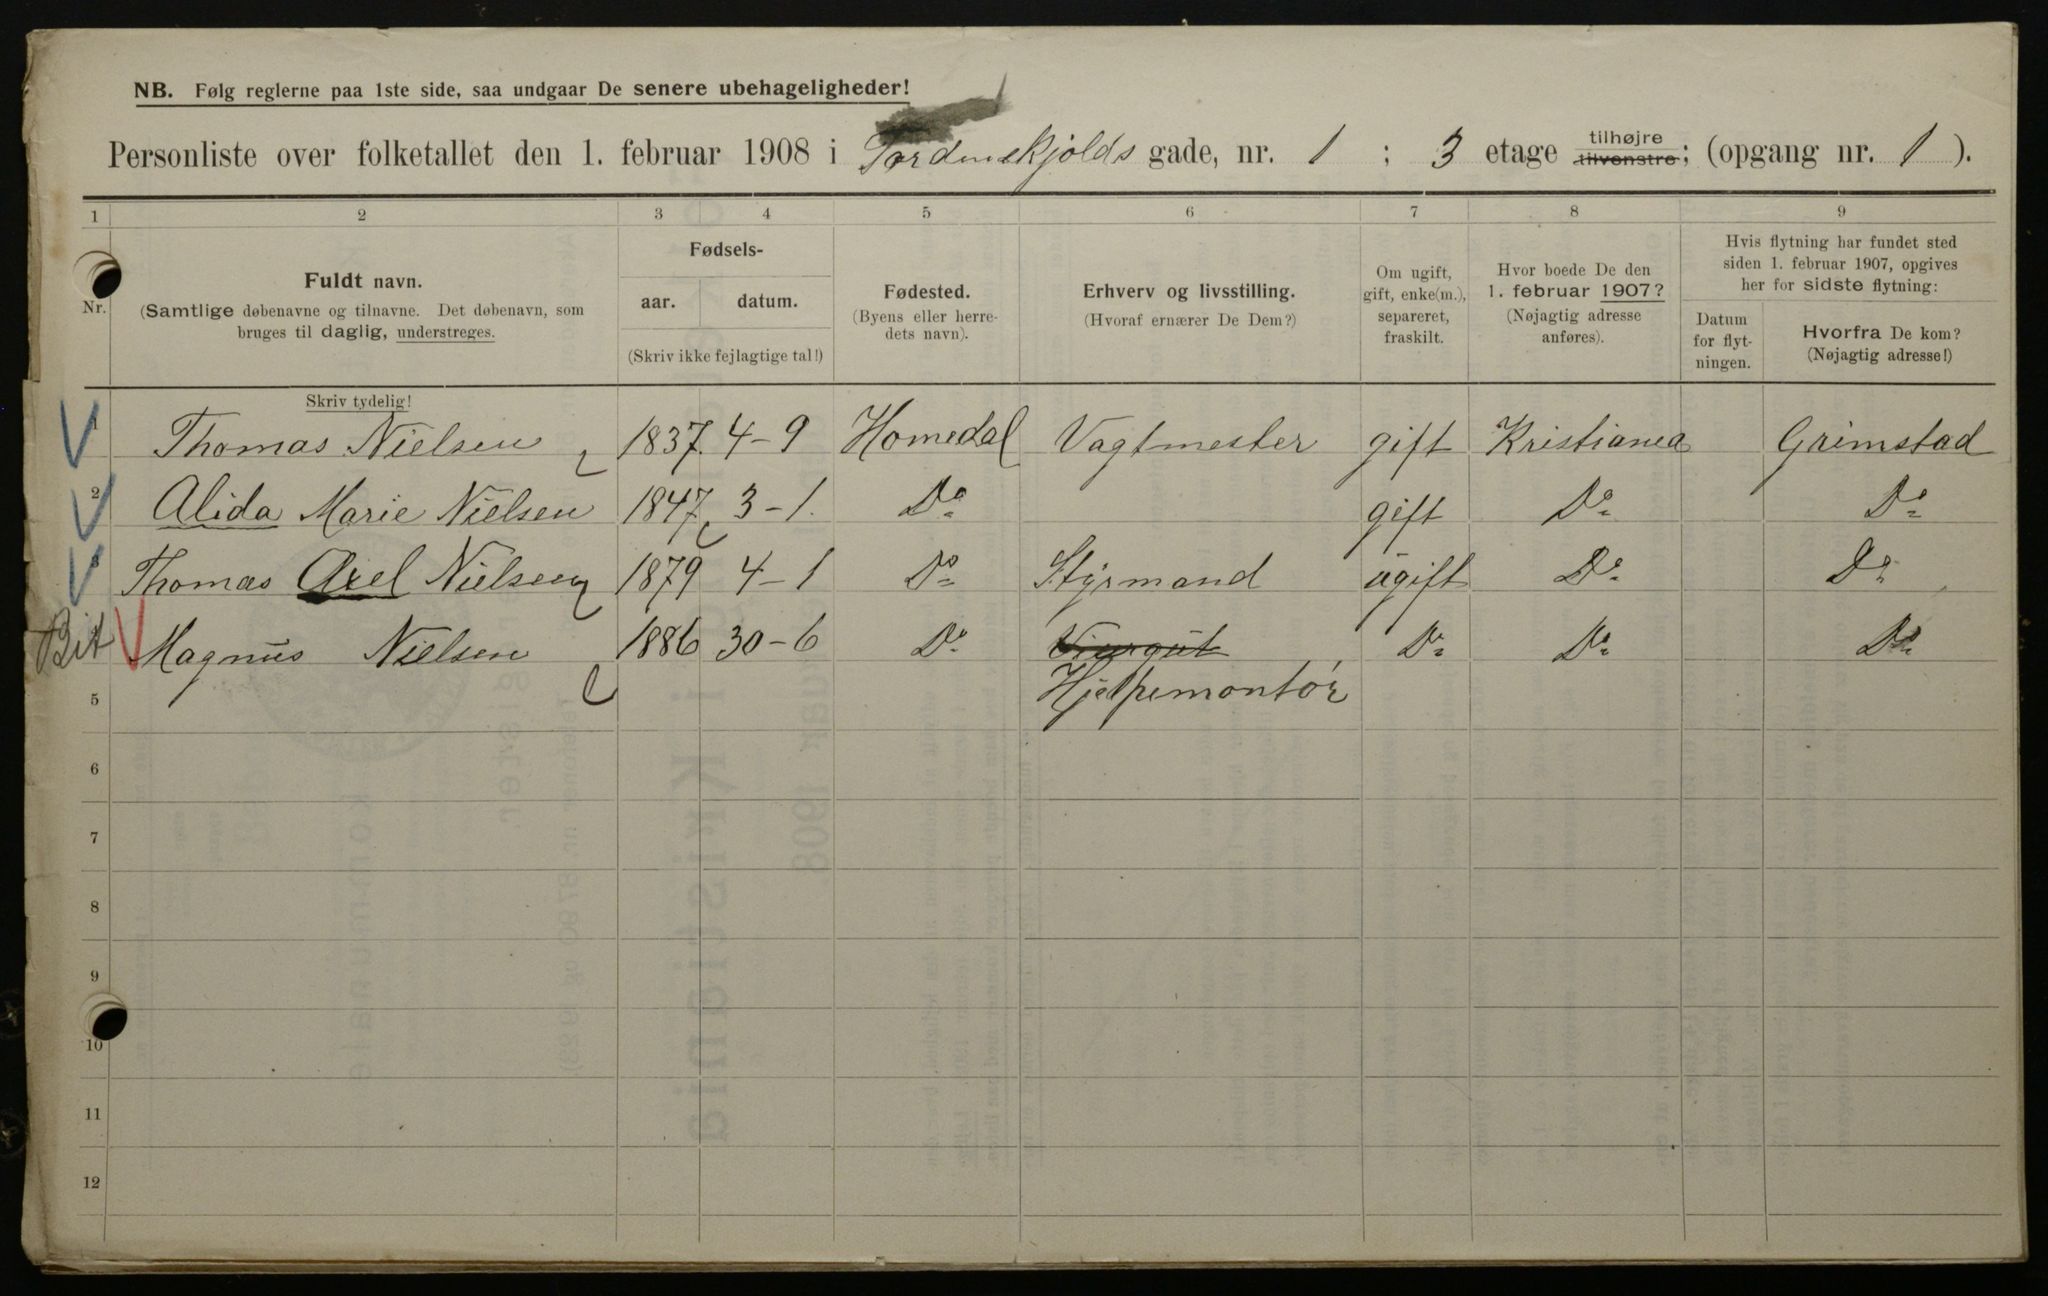 NB. Følg reglerne paa 1ste side, saa undgaar De senere ubehageligheder!
Personliste over folketallet den 1. februar 1908 i Tordenskjolds gade, nr. 1 ; 3 etage tilhøjre tilvenstre; (opgang nr. 1 ).
1 2 3 4 5 6 7 8 9
Nr. Fuldt navn. (Samtlige døbenavne og tilnavne. Det døbenavn, som bruges til daglig, understreges.
Fødsels-
aar. datum.
(Skriv ikke fejlagtige tal!)
Fødested. (Byens eller herredets navn).
Erhverv og livsstilling. (Hvoraf ernærer De Dem?)
Om ugift, gift, enke(m.), separeret, fraskilt.
Hvor boede De den 1. februar 1907? (Nøjagtig adresse anføres).
Hvis flytning har fundet sted siden 1. februar 1907, opgives her for sidste flytning:
Datum for flytningen.
Hvorfra De kom? (Nøjagtig adresse!)
Skriv tydelig!
1 Thomas Nielsen 1837. 4-9 Homedal Vagtmester gift Kristiania Grimstad
2 Alida Marie Nielsen 1847 3-1. Do gift Do Do
3 Thomas Axel Nielsen 1879 4-1 Do Styrmand ugift Do Do
Magnus Nielsen 1886 30-6 Do Do Do Do
5 Hjelpemontør
6
7
8
9
10
11
12